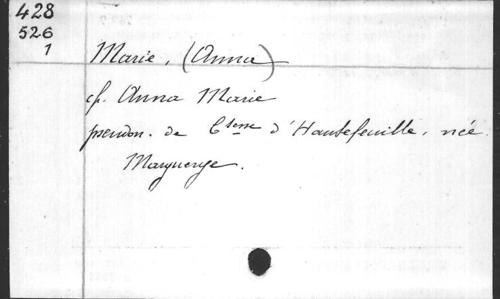 428
526
1
Marie, (Anna)
cf. Anna Marie
pseudon. de Ctesse d'Hautefeuille, née
Marguerye.